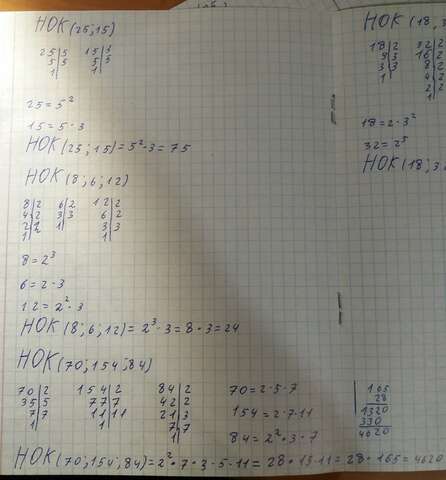 НОК(25;15)
25|5 15|3
5|5 5|5
1| 1|
25=5²
15=5·3
НОК(25;15)=5²·3=75
НОК(8;6;12)
8|2 6|2 12|2
4|2 3|3 6|2
2|2 1| 3|3
1| 1|
8=2³
6=2·3
12=2²·3
НОК(8;6;12)=2³·3=8·3=24
НОК(70;154;84)
70|2 154|2 84|2
35|5 77|7 42|2
7|7 11|11 21|3
1| 1| 7|7
1|
70=2·5·7
154=2·7·11
84=2²·3·7
165
28
1320
330
4620
НОК(70;154;84)=2²·7·3·5·11=28·15·11=28·165=4620
НОК(18;3
18|2 32|2
9|3 16|2
3|3 8|2
1| 4|2
2|2
1|
18=2·3²
32=2⁵
НОК(18;3